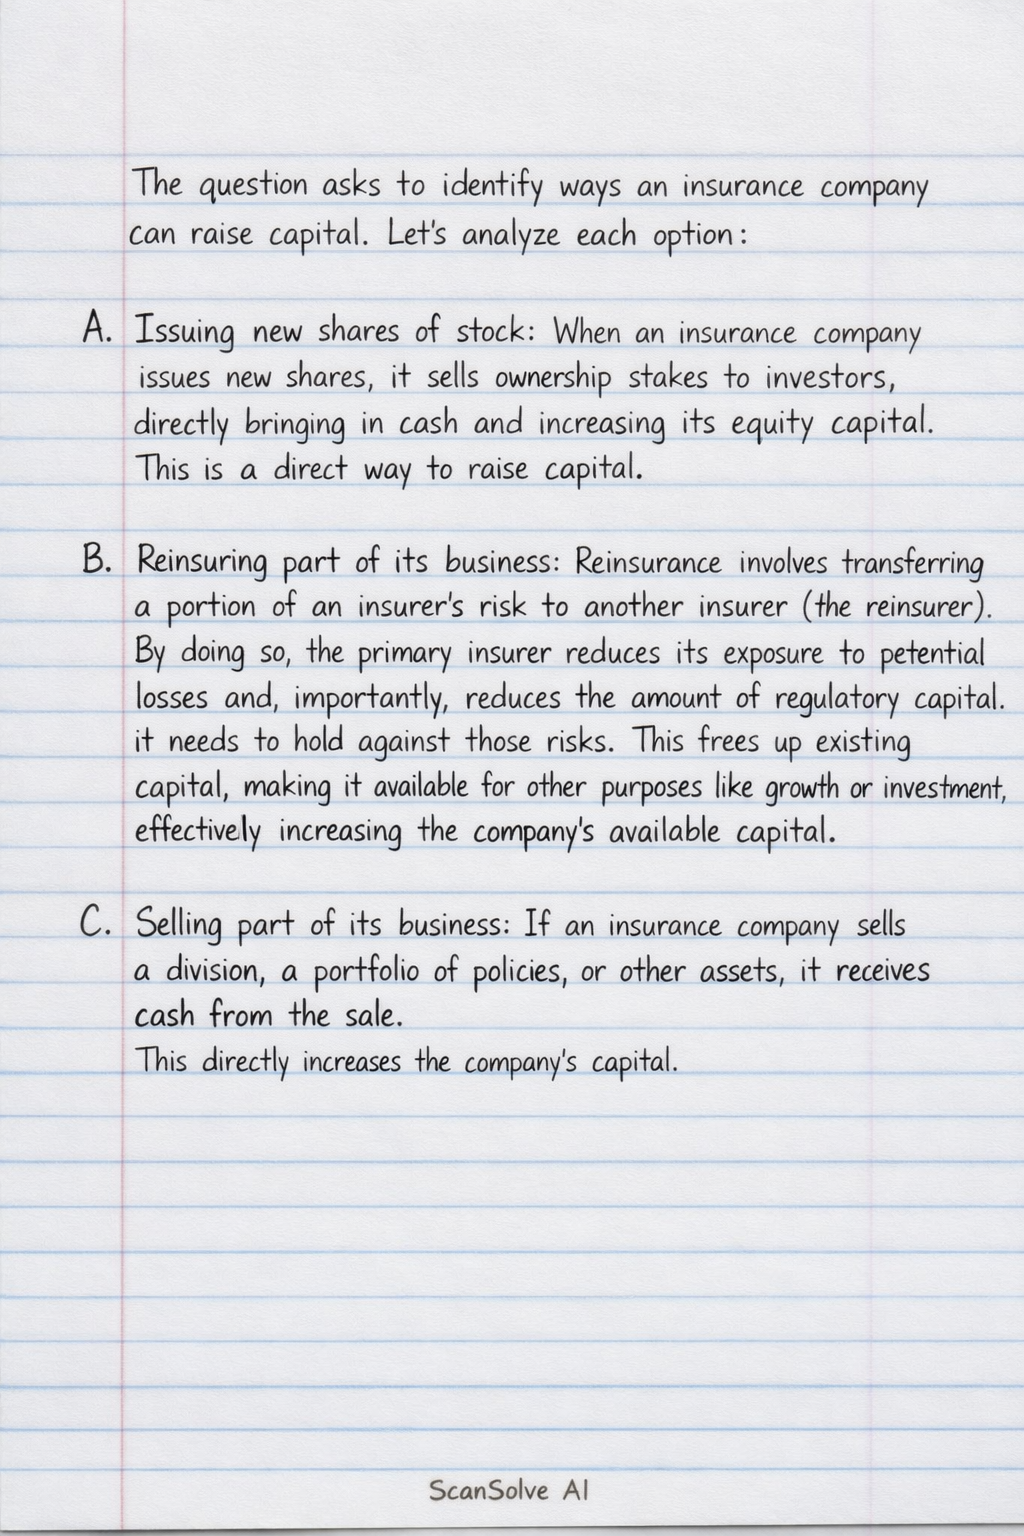 The question asks to identify ways an insurance company
can raise capital. Let's analyze each option:
A. Issuing new shares of stock: When an insurance company
issues new shares, it sells ownership stakes to investors,
directly bringing in cash and increasing its equity capital.
This is a direct way to raise capital.
B. Reinsuring part of its business: Reinsurance involves transferring
a portion of an insurer's risk to another insurer (the reinsurer).
By doing so, the primary insurer reduces its exposure to petential
losses and, importantly, reduces the amount of regulatory capital.
it needs to hold against those risks. This frees up existing
capital, making it available for other purposes like growth or investment,
effectively increasing the company's available capital.
C. Selling part of its business: If an insurance company sells
a division, a portfolio of policies, or other assets, it receives
cash from the sale.
This directly increases the company's capital.
ScanSolve AI